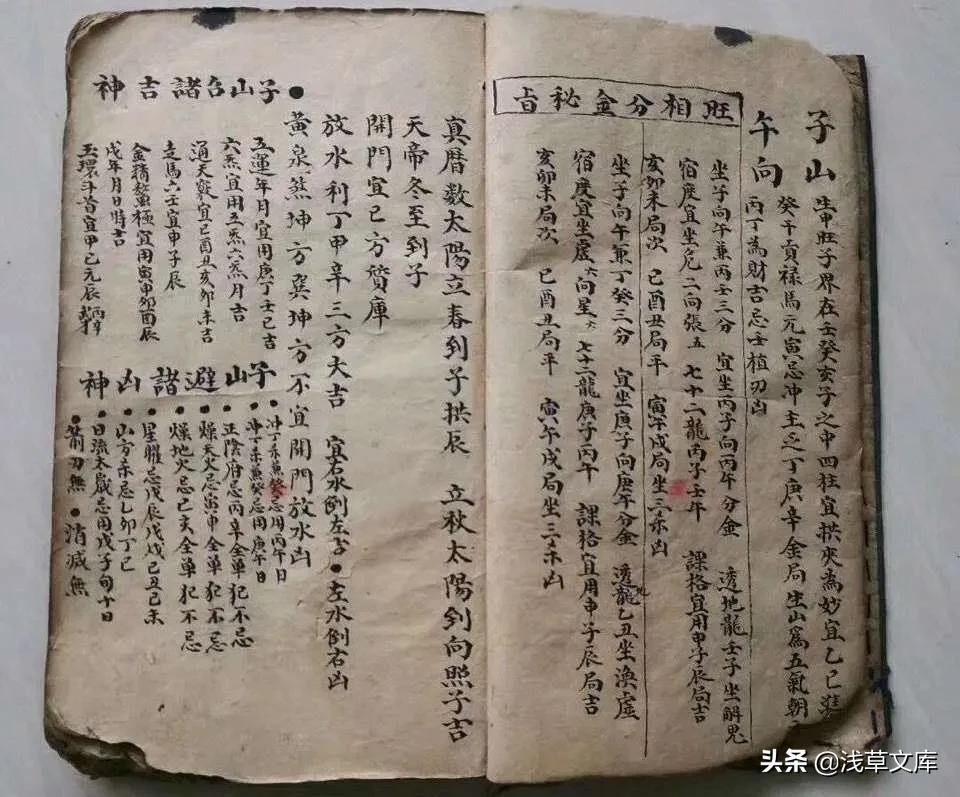 子山午向
生甲旺子界在壬癸亥子之中四柱宜拱夾為妙宜乙己
癸午貢祿馬元寅忌冲主乏丁庚辛金局生山為五氣朝
丙丁為財吉忌壬植刃凶
旺相分金秘旨
坐子向午兼丙壬三分 宜坐丙子向丙午分金 透地龍壬子坐解鬼
宿度宜坐危二向張五 七十二龍丙子壬午 課格宜用申子辰局吉
亥卯未局次 巳酉丑局平 寅午戌局坐三杀凶
坐子向午兼丁癸三分 宜坐庚子向庚午分金 透地龍乙丑坐渙虛
宿度宜坐虛六向星六 七十二龍庚子丙午 課格宜用申子辰局吉
亥卯未局次 巳酉丑局平 寅午戌局坐三杀凶
真曆数太陽立春到子拱辰 立秋太陽到向照子吉
天帝冬至到子
開門宜巳方贊庫
放水利丁甲辛三方大吉 宜右水倒左吉 •左水倒右凶
黃泉煞坤方巽坤方不宜開門放水凶
•子山吉諸吉神
五運年月宜用庚丁壬己吉
六炁宜用五炁六炁月吉
通天竅宜巳酉丑亥卯未吉
走馬六壬宜申子辰
金精鰲極宜用寅申卯酉辰
戌年月日時吉
玉環斗首宜甲己元辰
子山避諸凶神
•冲丁杀兼癸忌用丙午日
•冲丁杀兼癸忌用庚午日
•正陰府忌丙辛全單犯不忌
•燥天火忌寅申全單犯不忌
•燥地火忌巳亥全單犯不忌
•星曜忌戊辰戊戌己丑己未
•山方杀忌乙卯丁巳
•日流太歲忌用戊子旬十日
•箭刃無 •消減無
头条 @浅草文库